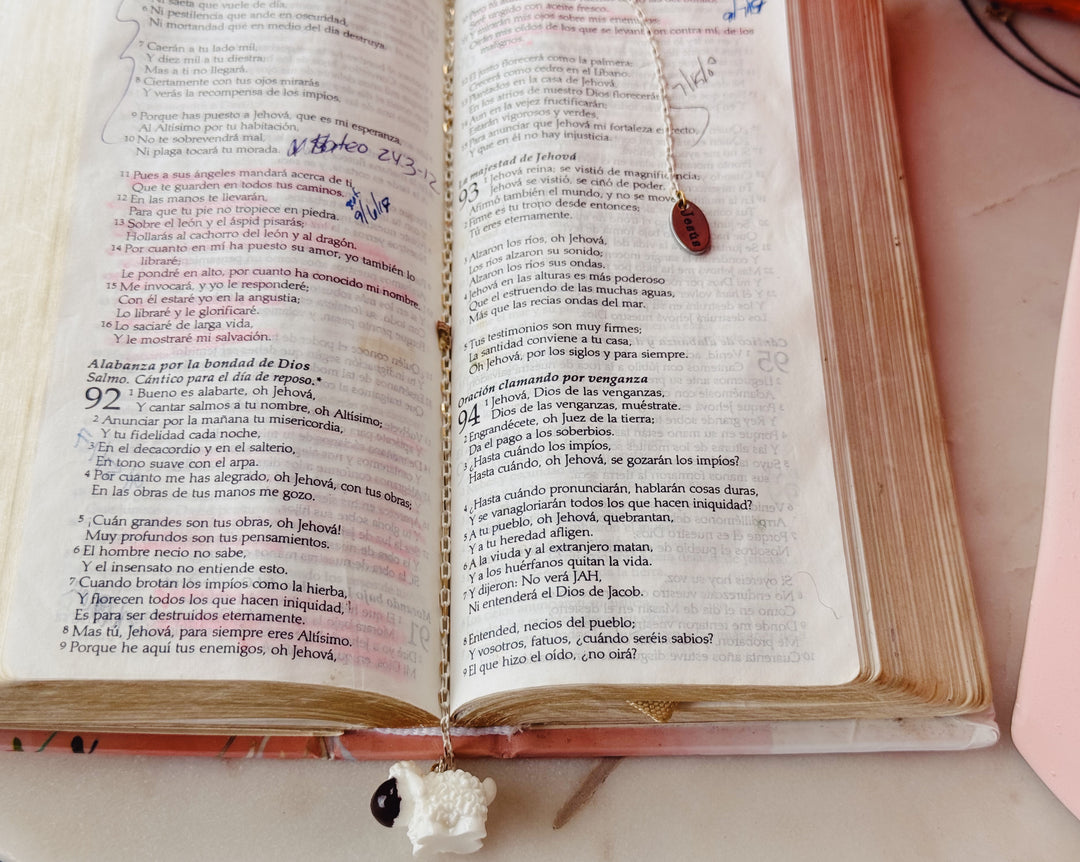 saeta que vuele de día,
6 Ni pestilencia que ande en oscuridad,
Ni mortandad que en medio del día destruya.
7 Caerán a tu lado mil,
Y diez mil a tu diestra;
Mas a ti no llegará.
8 Ciertamente con tus ojos mirarás
Y verás la recompensa de los impíos.
9 Porque has puesto a Jehová, que es mi esperanza,
Al Altísimo por tu habitación,
10 No te sobrevendrá mal,
Ni plaga tocará tu morada.
Mateo 24:3-12
11 Pues a sus ángeles mandará acerca de ti,
Que te guarden en todos tus caminos.
12 En las manos te llevarán,
Para que tu pie no tropiece en piedra.
9/6/18
13 Sobre el león y el áspid pisarás;
Hollarás al cachorro del león y al dragón.
14 Por cuanto en mí ha puesto su amor, yo también lo
libraré;
Le pondré en alto, por cuanto ha conocido mi nombre.
15 Me invocará, y yo le responderé;
Con él estaré yo en la angustia;
Lo libraré y le glorificaré.
16 Lo saciaré de larga vida,
Y le mostraré mi salvación.
Alabanza por la bondad de Dios
Salmo. Cántico para el día de reposo.*
92 1 Bueno es alabarte, oh Jehová,
Y cantar salmos a tu nombre, oh Altísimo;
2 Anunciar por la mañana tu misericordia,
Y tu fidelidad cada noche,
3 En el decacordio y en el salterio,
En tono suave con el arpa.
4 Por cuanto me has alegrado, oh Jehová, con tus obras;
En las obras de tus manos me gozo.
5 ¡Cuán grandes son tus obras, oh Jehová!
Muy profundos son tus pensamientos.
6 El hombre necio no sabe,
Y el insensato no entiende esto.
7 Cuando brotan los impíos como la hierba,
Y florecen todos los que hacen iniquidad,
Es para ser destruidos eternamente.
8 Mas tú, Jehová, para siempre eres Altísimo.
9 Porque he aquí tus enemigos, oh Jehová,
con aceite fresco.
mis ojos sobre mis enemigos;
Oirán mis oídos de los que se levantaron contra mí, de los
malignos.
12 El justo florecerá como la palmera;
Crecerá como cedro en el Líbano.
13 Plantados en la casa de Jehová,
En los atrios de nuestro Dios florecerán.
14 Aun en la vejez fructificarán;
Estarán vigorosos y verdes,
15 Para anunciar que Jehová mi fortaleza es recto,
Y que en él no hay injusticia.
La majestad de Jehová
93 1 Jehová reina; se vistió de magnificencia;
Jehová se vistió, se ciñó de poder.
Afirmó también el mundo, y no se move
2 Firme es tu trono desde entonces;
Tú eres eternamente.
Jesús
3 Alzaron los ríos, oh Jehová,
Los ríos alzaron su sonido;
Alzaron los ríos sus ondas.
4 Jehová en las alturas es más poderoso
Que el estruendo de las muchas aguas,
Más que las recias ondas del mar.
5 Tus testimonios son muy firmes;
La santidad conviene a tu casa,
Oh Jehová, por los siglos y para siempre.
Oración clamando por venganza
94 1 Jehová, Dios de las venganzas,
Dios de las venganzas, muéstrate.
2 Engrandécete, oh Juez de la tierra;
Da el pago a los soberbios.
3 ¿Hasta cuándo los impíos,
Hasta cuándo, oh Jehová, se gozarán los impíos?
4 ¿Hasta cuándo pronunciarán, hablarán cosas duras,
Y se vanagloriarán todos los que hacen iniquidad?
5 A tu pueblo, oh Jehová, quebrantan,
Y a tu heredad afligen.
6 A la viuda y al extranjero matan,
Y a los huérfanos quitan la vida.
7 Y dijeron: No verá JAH,
Ni entenderá el Dios de Jacob.
8 Entended, necios del pueblo;
Y vosotros, fatuos, ¿cuándo seréis sabios?
9 El que hizo el oído, ¿no oirá?